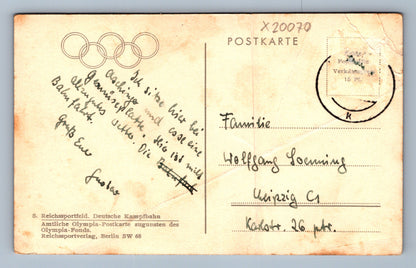 X20070
POSTKARTE
Ich sitze hier bei
Aschinger und esse eine
Gemüseplatte. Sie ist mild
Bahnfahrt.
Gruß Euer
Gustav
Familie
Wolfgang Soenning
Leipzig C1
Karlstr. 26 ptr.
S. Reichssportfeld. Deutsche Kampfbahn
Amtliche Olympia-Postkarte zugunsten des
Olympia-Fonds.
Reichssportverlag, Berlin SW 68